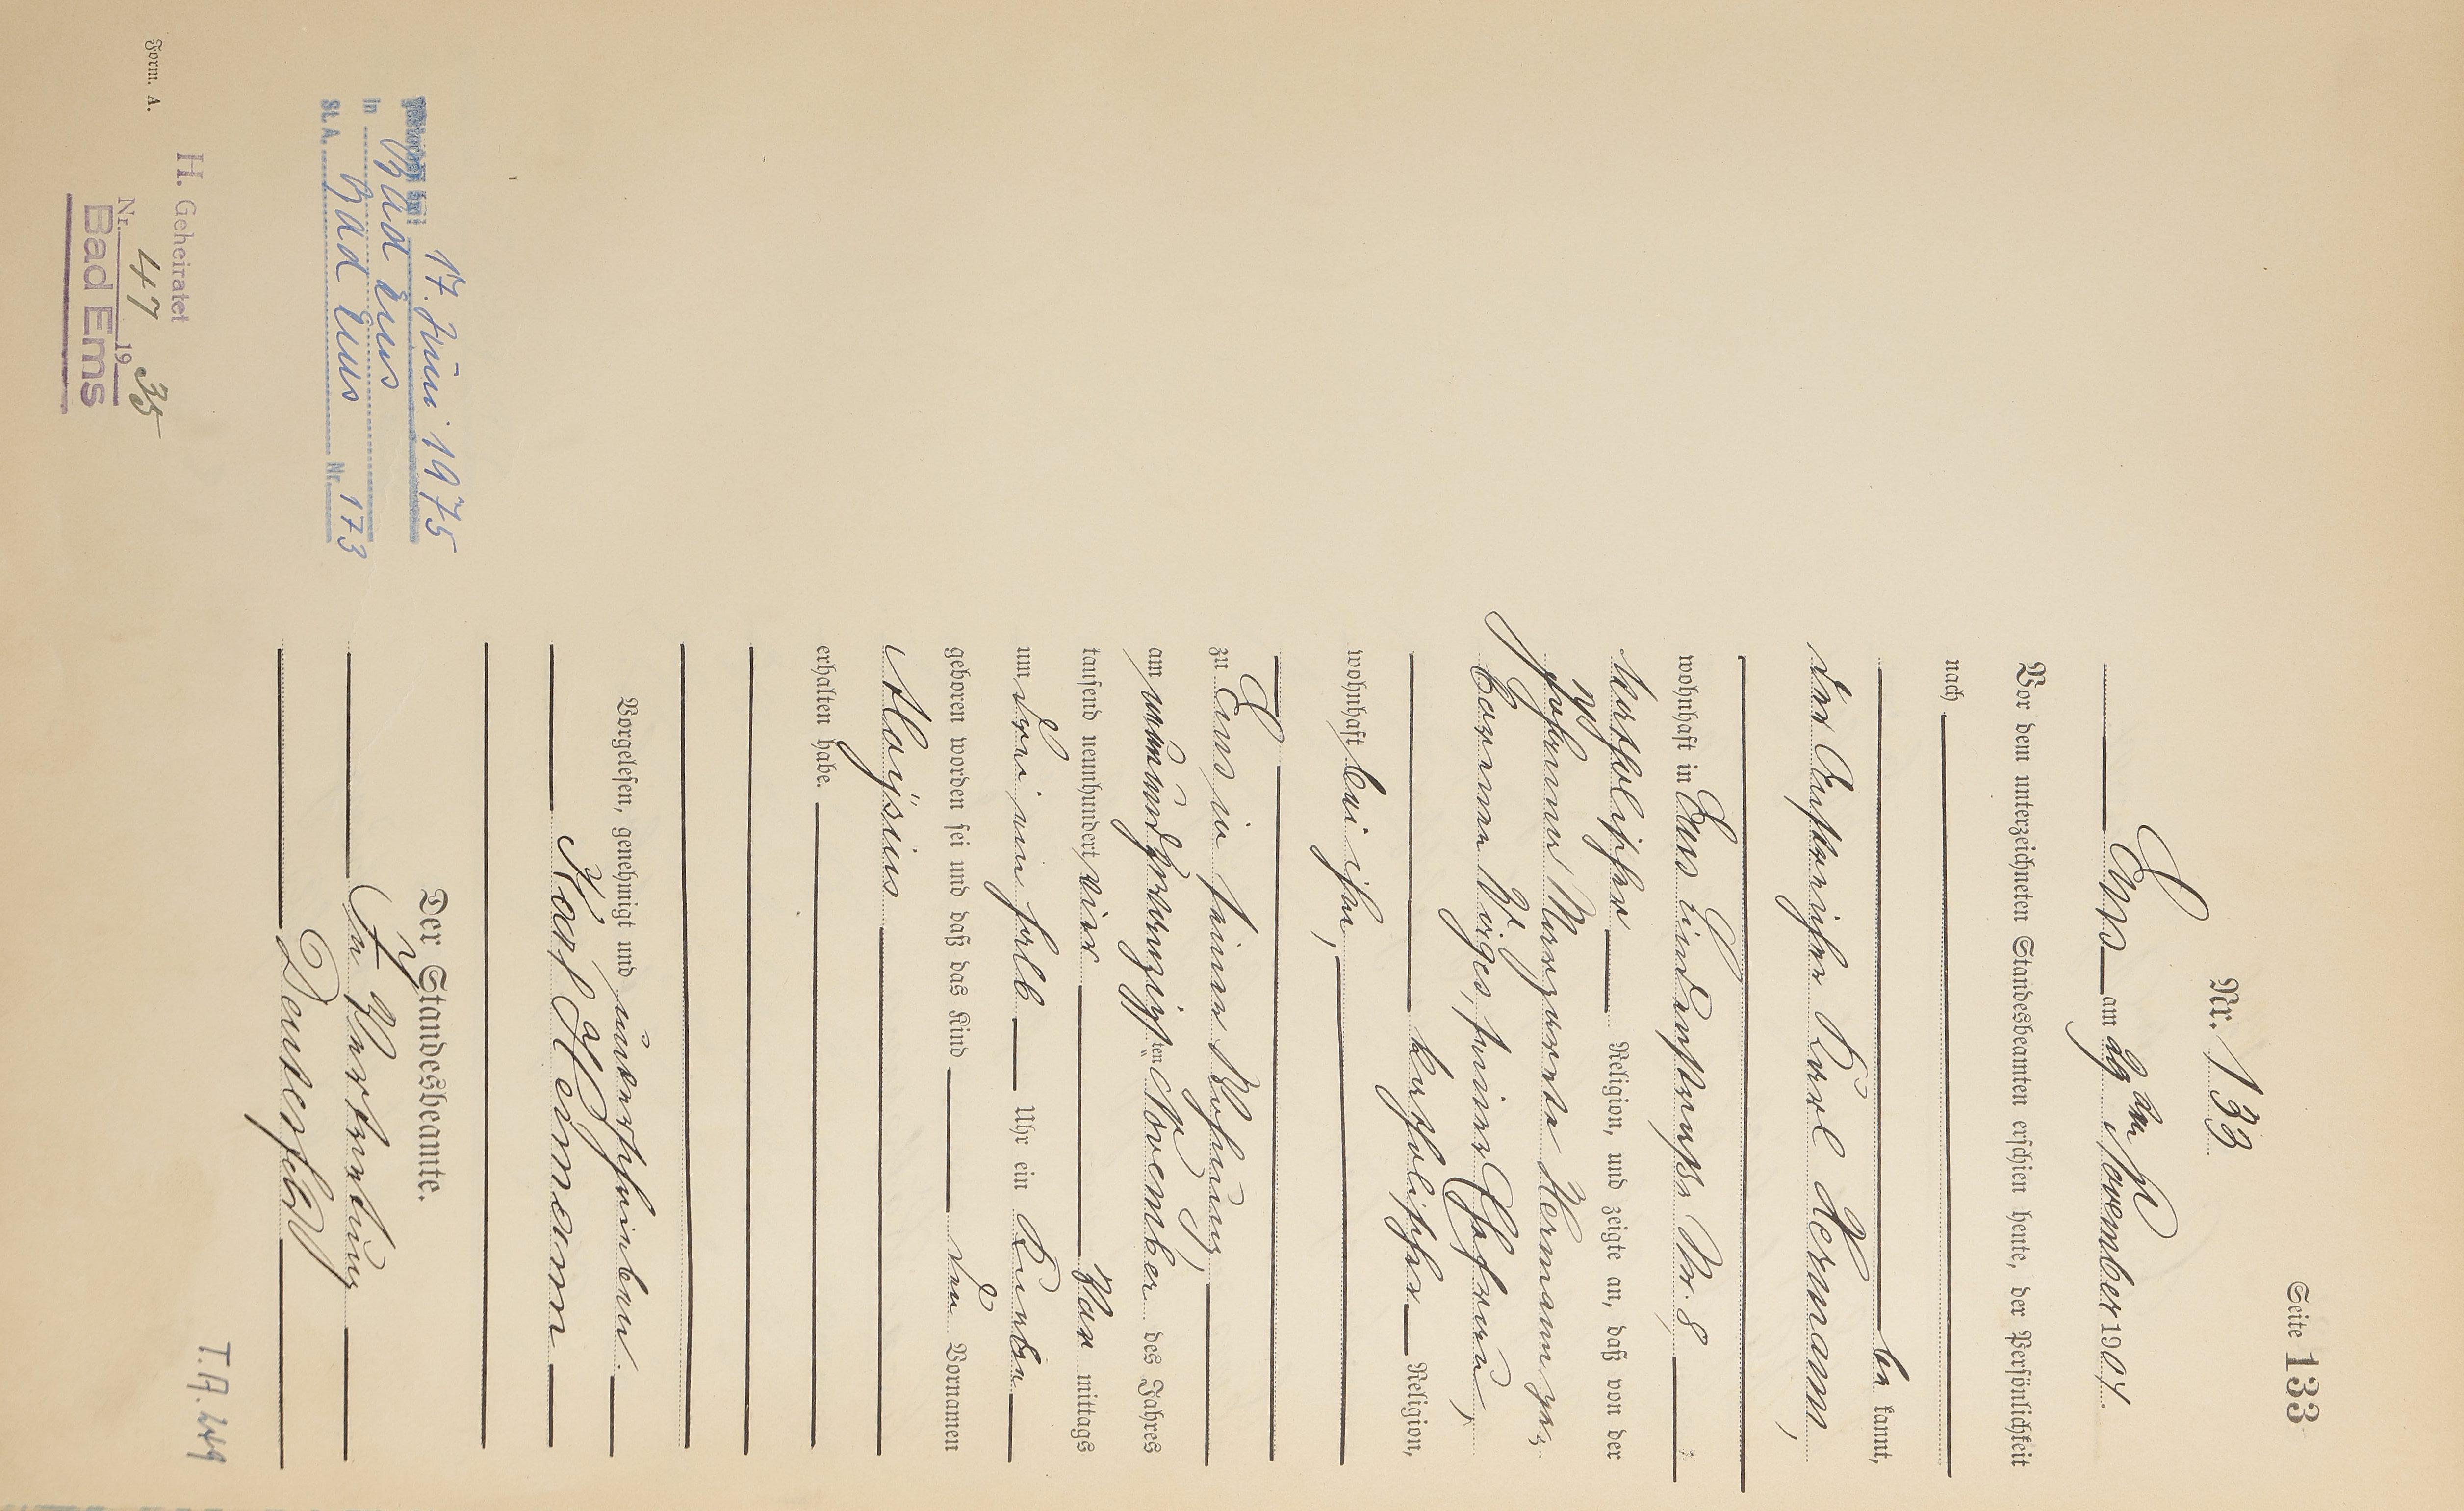 Seite 133
Nr. 133
Ems am 26ten November 1904.
Vor dem unterzeichneten Standesbeamten erschien heute, der Persönlichkeit
nach
be kannt,
der Anstreicher Karl Hermann,
wohnhaft in Ems Lindenstraße Nr. 8
katholischer Religion, und zeigte an, daß von der
Johanna Margareta Hermann ge-
borenen Wirges, seiner Ehefrau,
katholischer Religion,
wohnhaft bei ihm,
zu Ems in seiner Wohnung,
am neunundzwanzigsten November des Jahres
tausend neunhundert vier Vor mittags
um drei ein halb Uhr ein Knabe
geboren worden sei und daß das Kind den Vornamen
Aloysius
erhalten habe.
Vorgelesen, genehmigt und unterschrieben.
Karl Hermann
Der Standesbeamte.
In Vertretung
17. Juni 1975
in Bad Ems
St. A. Bad Ems Nr. 173
H. Geheiratet
Nr. 47 1935
Bad Ems
Form. A.